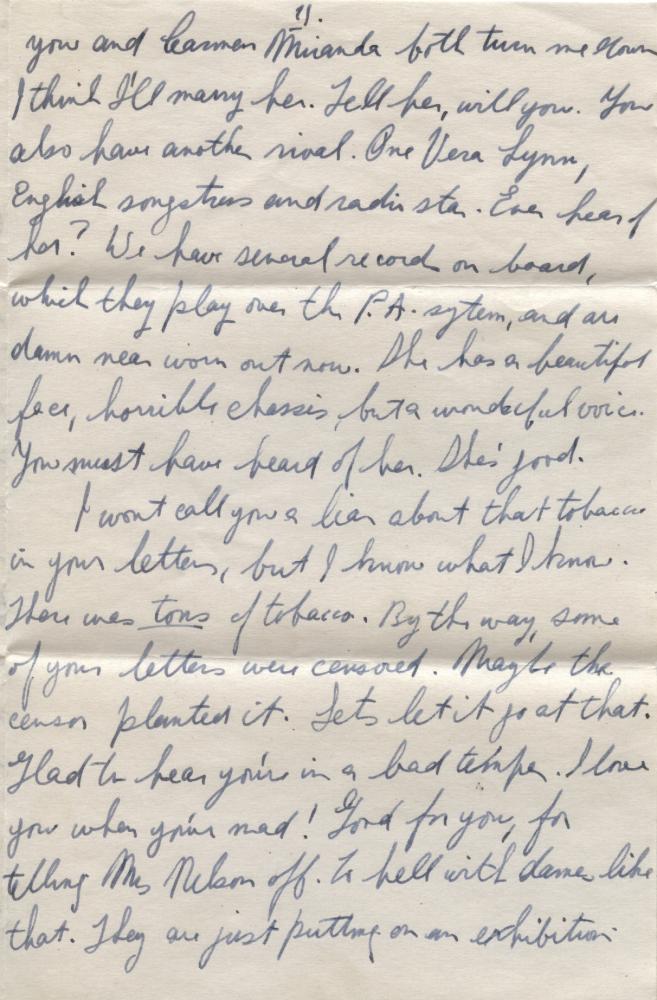 11.
you and Carmen Miranda both turn me down
I think I'll marry her. Tell her, will you. You
also have another rival. One Vera Lynn,
English songstress and radio star. Ever hear of
her? We have several records on board,
which they play over the P.A. sytem, and are
damn near worn out now. She has a beautiful
face, horrible chassis, but a wonderful voice.
You must have heard of her. She's good.
I wont call you a liar about that tobacco
in your letters, but I know what I know.
There was tons of tobacco. By the way, some
of your letters were censored. Maybe the
censor planted it. Lets let it go at that.
Glad to hear you're in a bad temper. I love
you when you're mad! Good for you, for
telling Mrs Nelson off. To hell with dames like
that. They are just putting on an exhibition